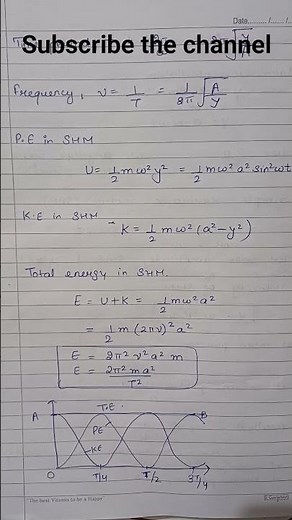 Date......../..../....
Subscribe the channel
Frequency, ν = 1/T = 1/2π √(A/y)
P.E in SHM
U = 1/2 mω²y² = 1/2 mω²a² sin²ωt
K.E in SHM
K = 1/2 mω² (a²-y²)
Total energy in SHM.
E = U+K = 1/2 mω²a²
= 1/2 m (2πν)² a²
E = 2π² ν² a² m
E = 2π² ma²/T²
A T.E B
PE
KE
0 T/4 T/2 3T/4